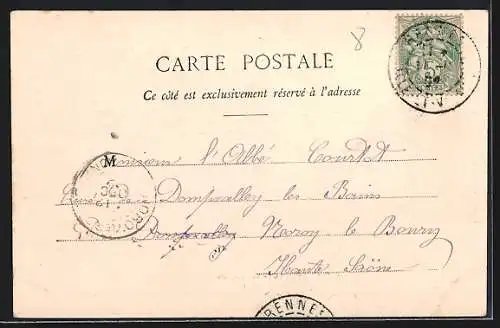 8
CARTE POSTALE
Ce côté est exclusivement réservé à l'adresse
RENNES
M
Monsieur l'Abbé Courtot
Curé de Dampvalley les Bains
Dampvalley Noroy le Bourg
Haute Saône
RENNES